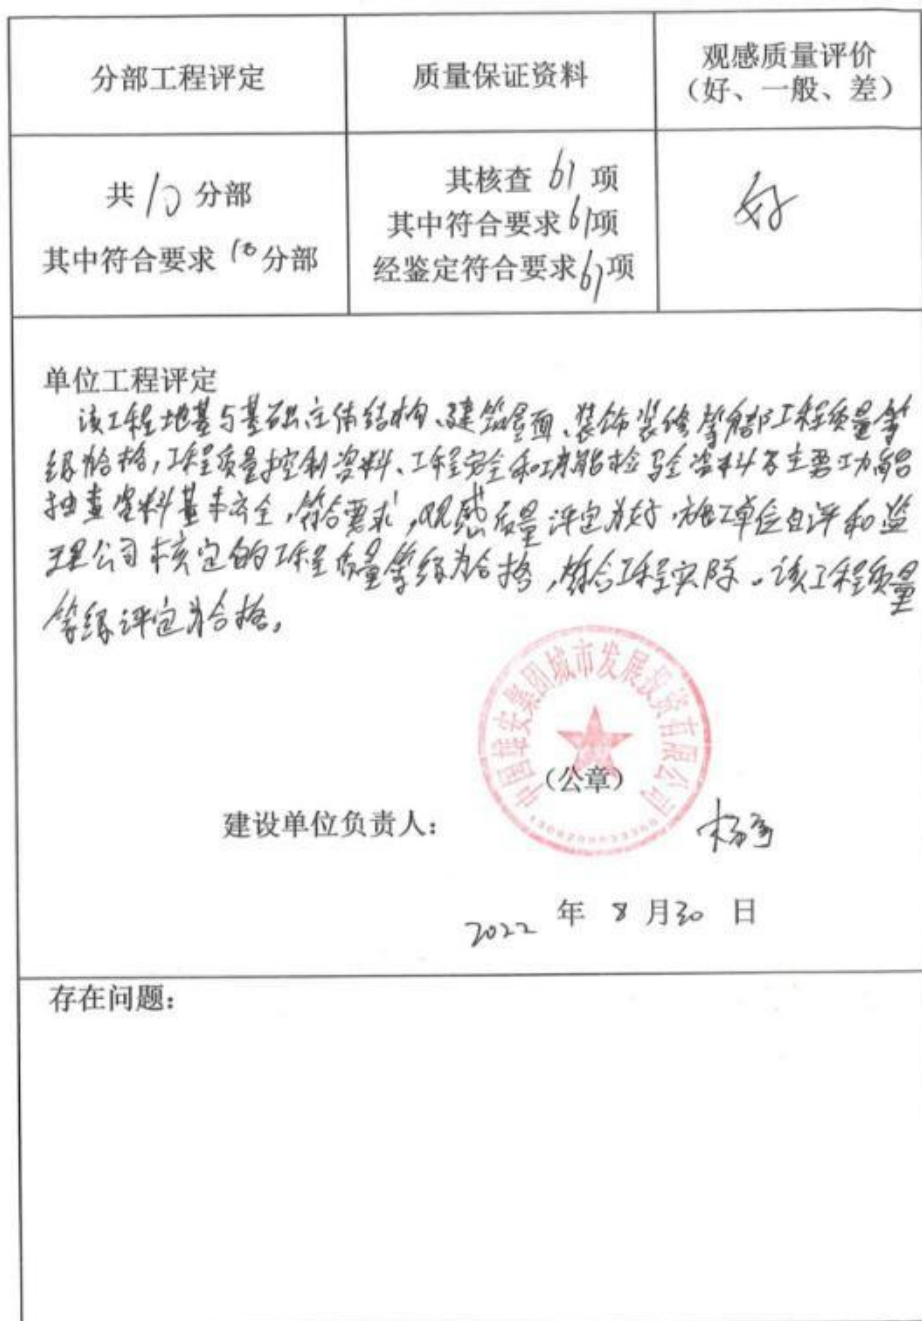 分部工程评定
质量保证资料
观感质量评价
（好、一般、差）
共 10 分部
其中符合要求 10 分部
其核查 61 项
其中符合要求 61 项
经鉴定符合要求 61 项
好
单位工程评定
该工程地基与基础、主体结构、建筑屋面、装饰装修等分部工程质量等
级为合格，工程质量控制资料、工程安全和功能检验资料及主要功能
抽查资料基本齐全，符合要求，观感质量评定为好，施工单位自评和监
理公司核定的工程质量等级为合格，符合工程实际。该工程质量
等级评定为合格。
中国雄安集团城市发展投资有限公司
（公章）
建设单位负责人：
2022 年 8 月 30 日
存在问题：